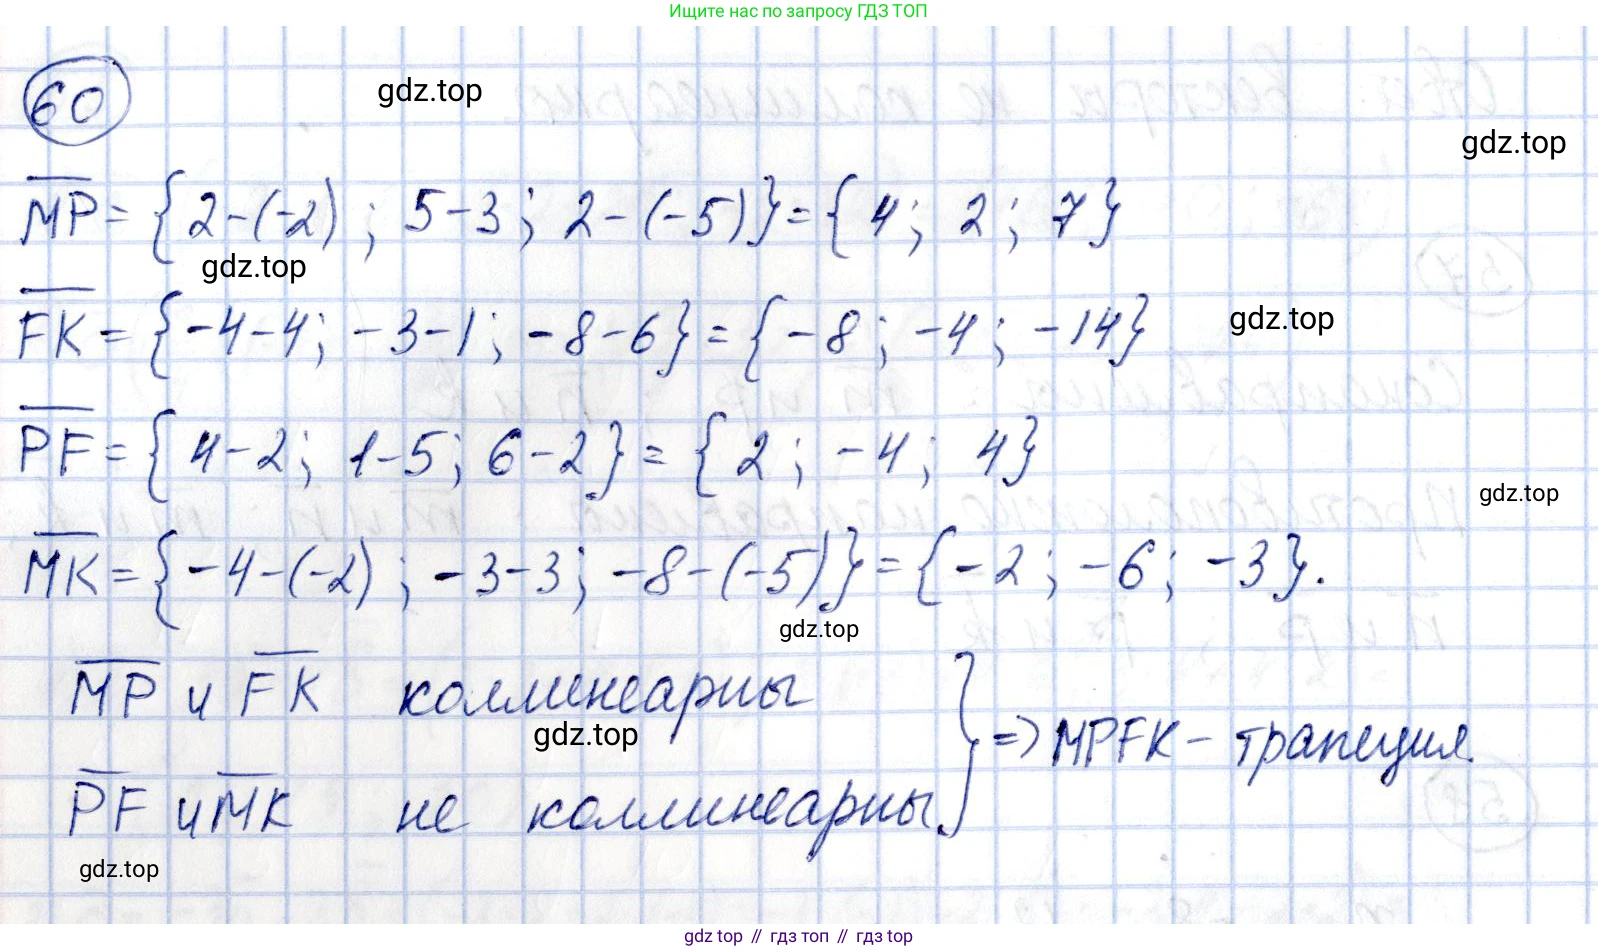 Ищите нас по запросу ГДЗ ТОП
60
gdz.top
gdz.top
MP = {2-(-2); 5-3; 2-(-5)} = {4; 2; 7}
gdz.top
FK = {-4-4; -3-1; -8-6} = {-8; -4; -14}
gdz.top
PF = {4-2; 1-5; 6-2} = {2; -4; 4}
gdz.top
MK = {-4-(-2); -3-3; -8-(-5)} = {-2; -6; -3}.
gdz.top
MP и FK коллинеарны
gdz.top
=> MPFK - трапеция.
PF и MK не коллинеарны.
gdz.top
gdz top // гдз топ // gdz.top